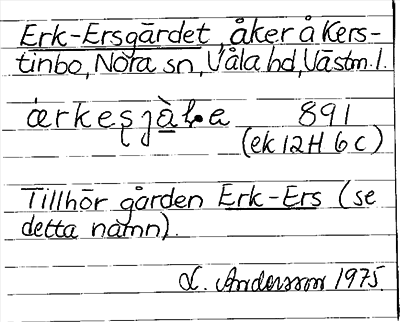 Erk-Ersgärdet, åker å Kers-
tinbo, Nora sn, Våla hd, Västm.l.
891
(ek 12H 6c)
Tillhör gården Erk-Ers (se
detta namn).
L. Andersson 1975.